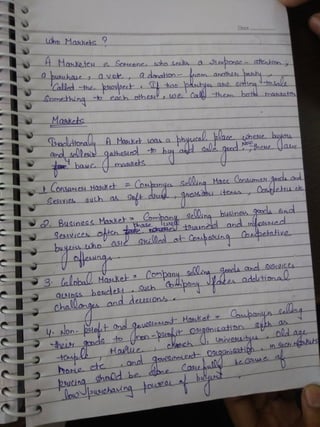 Who Markets ?
A Marketer is Someone who seeks a response - attention,
a purchase, a vote, a donation - from another party,
Called the prospect. If two parties are seeking to sell
something to each other, we call them both marketers
Markets
Traditionally A Market was a physical place where buyers
and sellers gathered to buy and sell good Now there are
4 basic markets
1. Consumer Market = Company selling Mass Consumer goods and
Services such as soft drink, items,
2. Business Market = Company selling business goods and
Services often face trained and informed
buyers who are skilled at Comparing Competative
offerings.
3. Global Market = Company selling goods and services
across borders. Such Company faces additional
challanges and decisions.
4. Non-Profit and government Market = Company selling
their goods to non-profit organisation such as
temple, church, university, Old age
home etc, and government organisation, in such markets
pricing should be done Carefully because of
low purchasing power of buyers.